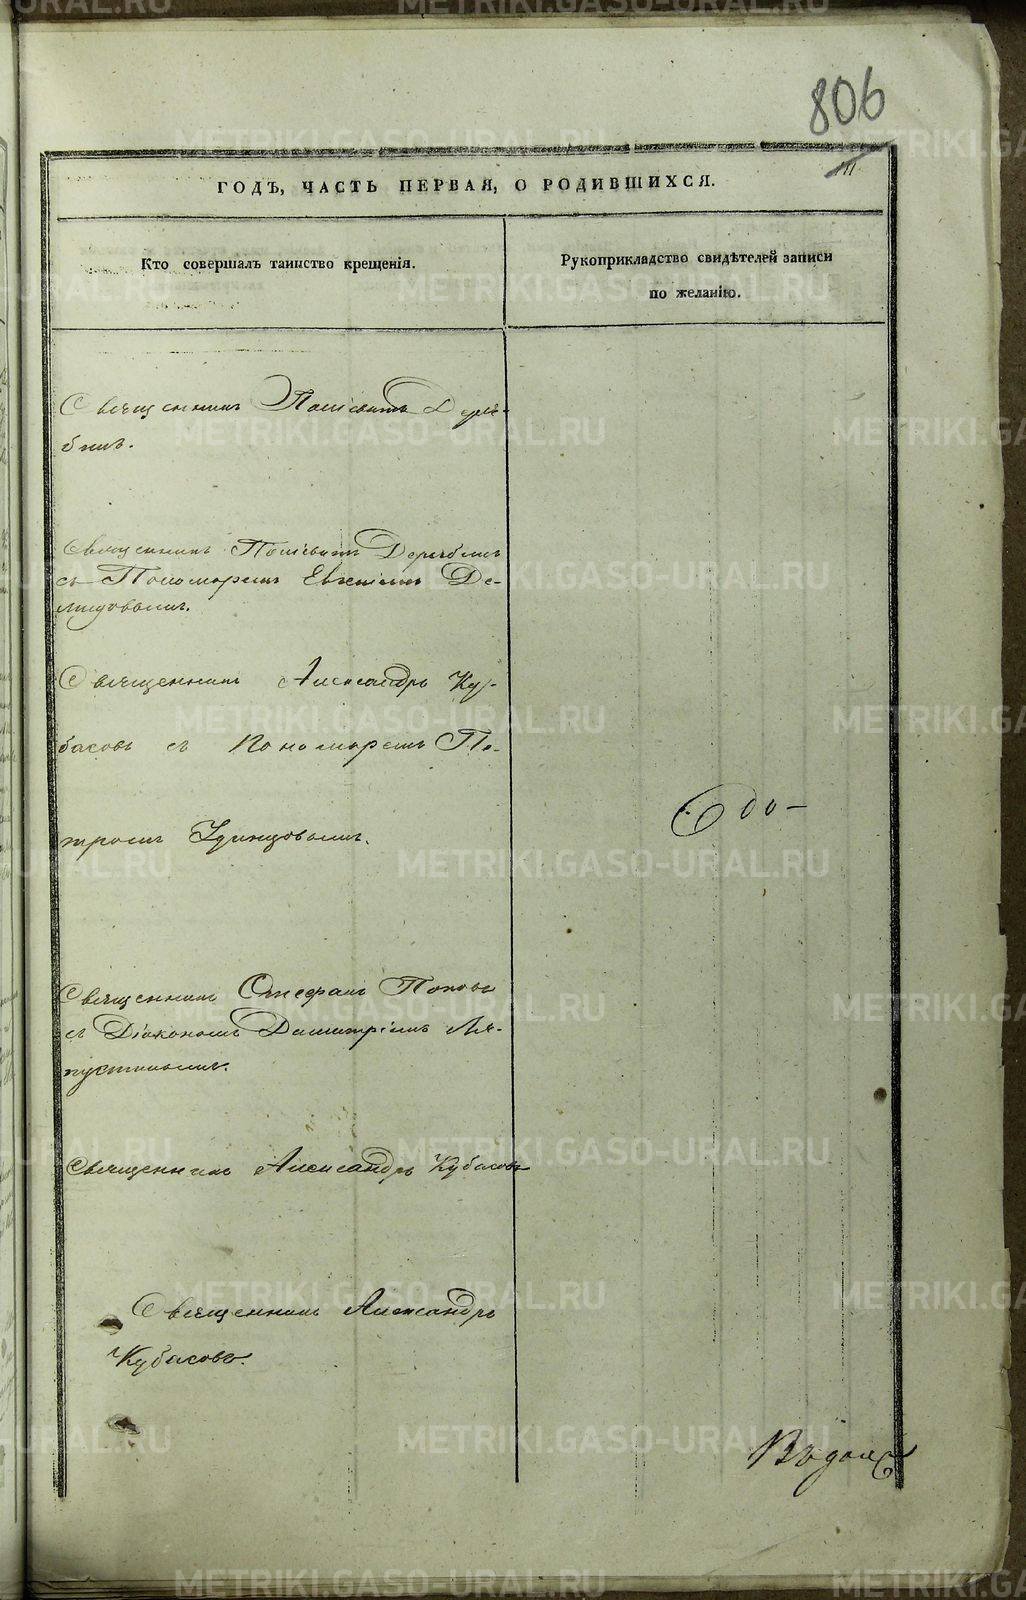 806
ГОДЪ, ЧАСТЬ ПЕРВАЯ, О РОДИВШИХСЯ.
Кто совершалъ таинство крещенія.
Рукоприкладство свидѣтелей записи
по желанію.
Священникъ
Священникъ
съ Пономаремъ Евгеніемъ Де-
мидовымъ.
Священникъ Александръ Ку-
басовъ съ Пономаремъ Пе-
тромъ Удинцовымъ.
Священникъ Стефанъ Поповъ
съ Діакономъ Димитріемъ Ля-
пустинымъ.
Священникъ Александръ Кубасовъ
Священникъ Александръ
Кубасовъ.
METRIKI.GASO-URAL.RU